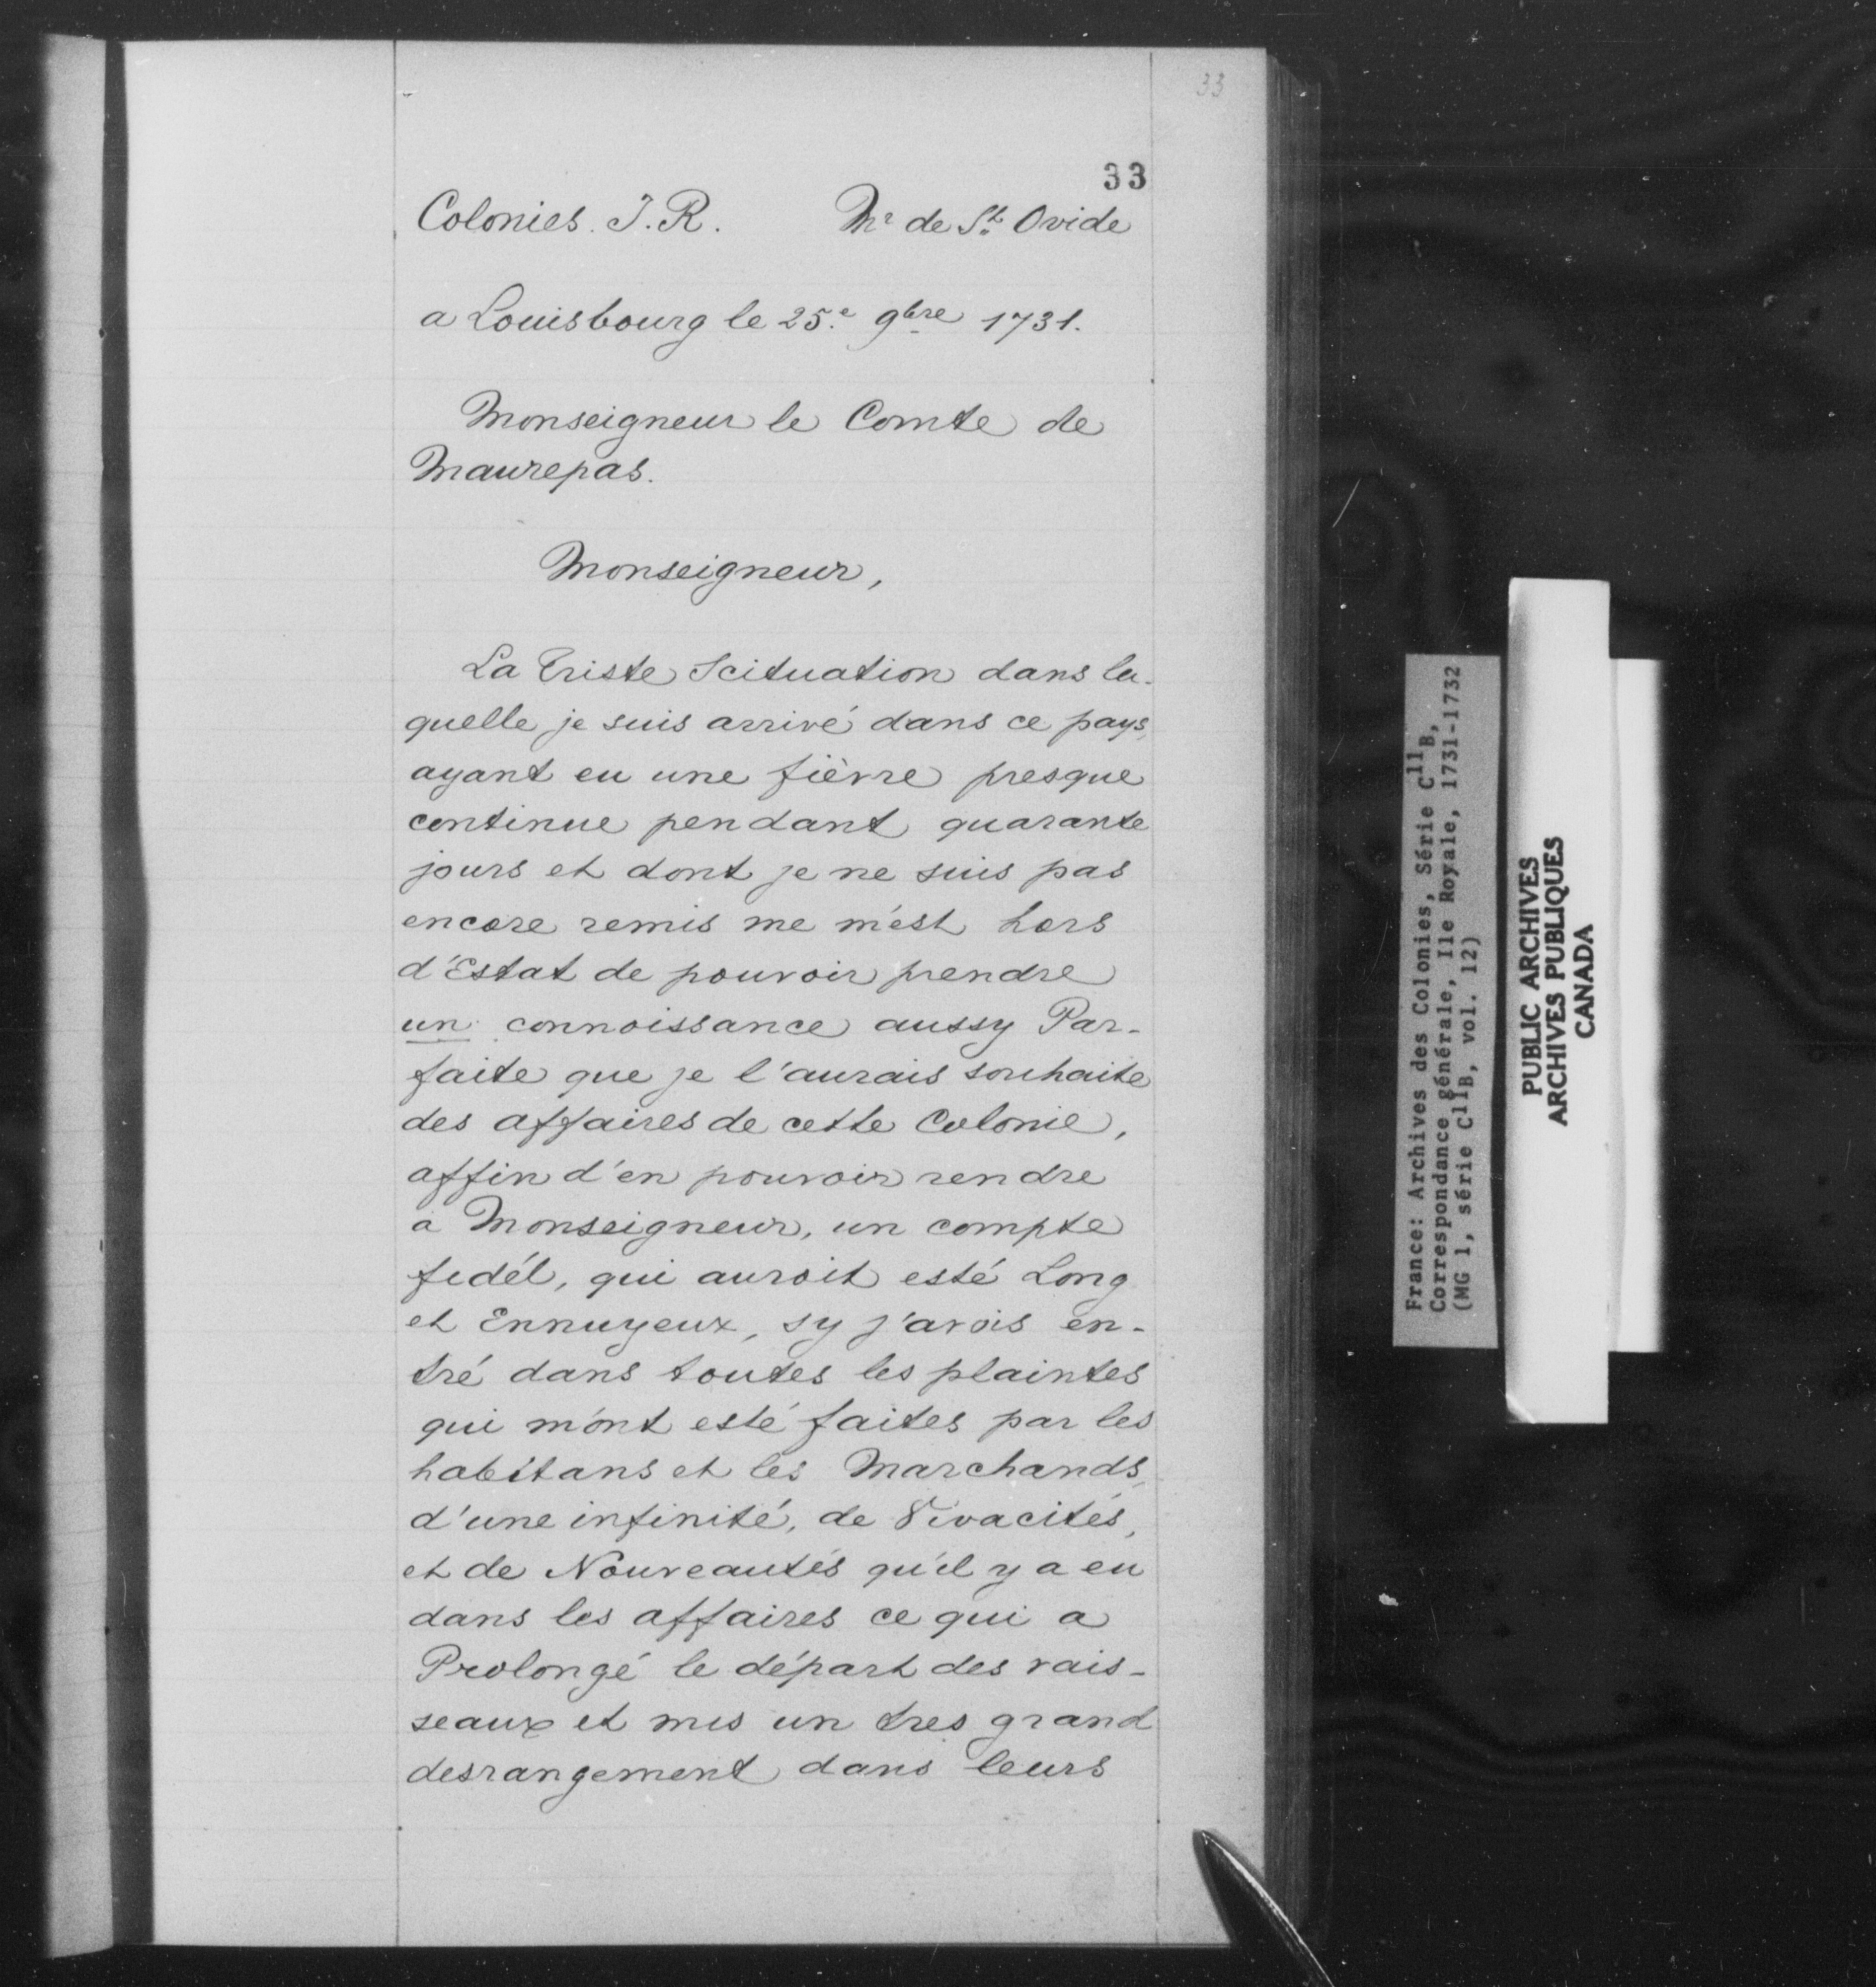 33
33
Colonies. I. R. Mr de St. Ovide
a Louisbourg le 25.e 9bre 1731.
Monseigneur le Comte de
Maurepas.
Monseigneur,
La Triste Scituation dans la-
quelle je suis arrivé dans ce pays,
ayant eu une fièvre presque
continue pendant quarante
jours et dont je ne suis pas
encore remis me m'est hors
d'Estat de pouvoir prendre
un connoissance aussy Par-
faite que je l'aurais souhaite
des affaires de cette Colonie,
affin d'en pouvoir rendre
a Monseigneur, un compte
fidél, qui auroit esté Long
et Ennuyeux, sy j'avois en-
tré dans toutes les plaintes
qui m'ont esté faites par les
habitans et les Marchands,
d'une infinité, de Vivacités,
et de Nouveautés qu'il y a eu
dans les affaires ce qui a
Prolongé le départ des vais-
seaux et mis un tres grand
desrangement dans leurs
France: Archives des Colonies, Série C11B,
Correspondance générale, Ile Royale, 1731-1732
(MG 1, série C11B, vol. 12)
PUBLIC ARCHIVES
ARCHIVES PUBLIQUES
CANADA